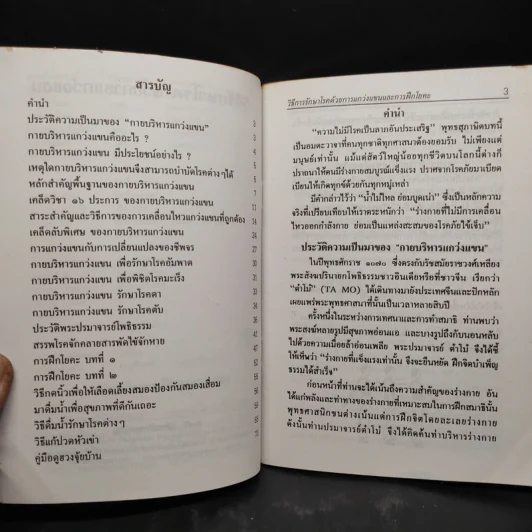 สารบัญ
คำนำ
ประวัติความเป็นมาของ "กายบริหารแกว่งแขน"
กายบริหารแกว่งแขนคืออะไร ?
กายบริหารแกว่งแขน มีประโยชน์อย่างไร ?
เหตุใดกายบริหารแกว่งแขนจึงสามารถบำบัดโรคต่างๆได้
หลักสำคัญพื้นฐานของกายบริหารแกว่งแขน
เคล็ดวิชา ๑๖ ประการ ของกายบริหารแกว่งแขน
สาระสำคัญและวิธีการของการเคลื่อนไหวแกว่งแขนที่ถูกต้อง
เคล็ดลับพิเศษ ของกายบริหารแกว่งแขน
การแกว่งแขนกับการเปลี่ยนแปลงของชีพจร
กายบริหารแกว่งแขน เพื่อรักษาโรคอัมพาต
กายบริหารแกว่งแขน เพื่อพิชิตโรคมะเร็ง
กายบริหารแกว่งแขน รักษาโรคตา
กายบริหารแกว่งแขน รักษาโรคตับ
ประวัติพระปรมาจารย์โพธิธรรม
สรรพโรคจักคลายสารพัดไข้จักหาย
การฝึกโยคะ บทที่ ๑
การฝึกโยคะ บทที่ ๒
วิธีกดนิ้วเพื่อให้เลือดเลี้ยงสมองป้องกันสมองเสื่อม
มาดื่มน้ำเพื่อสุขภาพที่ดีกันเถอะ
วิธีดื่มน้ำรักษาโรคต่างๆ
วิธีแก้ปวดหัวเข่า
คู่มือดูฮวงจุ้ยบ้าน
วิธีการรักษาโรคด้วยการแกว่งแขนและการฝึกโยคะ 3
คำนำ
"ความไม่มีโรคเป็นลาภอันประเสริฐ" พุทธสุภาษิตบทนี้
เป็นอมตะวาจาที่คนทุกชาติทุกศาสนาต้องยอมรับ ไม่เพียงแต่
มนุษย์เท่านั้น แม้แต่สัตว์ใหญ่น้อยทุกชีวิตบนโลกนี้ต่างก็
ปรารถนาให้ตนมีร่างกายสมบูรณ์แข็งแรง ปราศจากโรคภัยมาเบียด
เบียนให้เกิดทุกข์ด้วยกันทุกหมู่เหล่า
มีคำกล่าวไว้ว่า "น้ำไม่ไหล ย่อมบูดเน่า" ซึ่งเป็นหลักความ
จริงที่เปรียบเทียบให้เราตระหนักว่า "ร่างกายที่ไม่มีการเคลื่อน
ไหวออกกำลังกาย ย่อมเป็นแหล่งสะสมของโรคภัยไข้เจ็บ"
ประวัติความเป็นมาของ "กายบริหารแกว่งแขน"
ในปีพุทธศักราช ๑๐๗๐ ซึ่งตรงกับรัชสมัยราชวงศ์เหลียง
พระสังฆปริณายกโพธิธรรมชาวอินเดียหรือที่ชาวจีน เรียกว่า
"ตั๋าโม้" (TA MO) ได้เดินทางมายังประเทศจีนและปักหลัก
เผยแพร่พระพุทธศาสนาที่นั้นเป็นเวลาหลายสิบปี
ครั้งหนึ่งในระหว่างการเทศนาและการทำสมาธิ ท่านพบว่า
พระสงฆ์หลายรูปมีสุขภาพอ่อนแอ และบางรูปถึงกับนอนหลับ
ไปด้วยความเมื่อยล้าอ่อนเพลีย พระปรมาจารย์ ตั๋าโม้ จึงได้ชี้
ให้เห็นว่า "ร่างกายที่แข็งแรงเท่านั้น จึงจะยืนหยัด ฝึกจิตบำเพ็ญ
ธรรมได้สำเร็จ"
ก่อนหน้าที่ท่านจะได้เน้นถึงความสำคัญของร่างกาย อัน
ได้แก่พลังและท่าทางของร่างกายที่เหมาะสมในการฝึกสมาธินั้น
พุทธศาสนิกชนต่างเน้นแต่การฝึกจิตโดยละเลยร่างกาย
ดังนั้นท่านปรมาจารย์ตั๋าโม้ จึงได้คิดค้นท่าบริหารร่างกาย